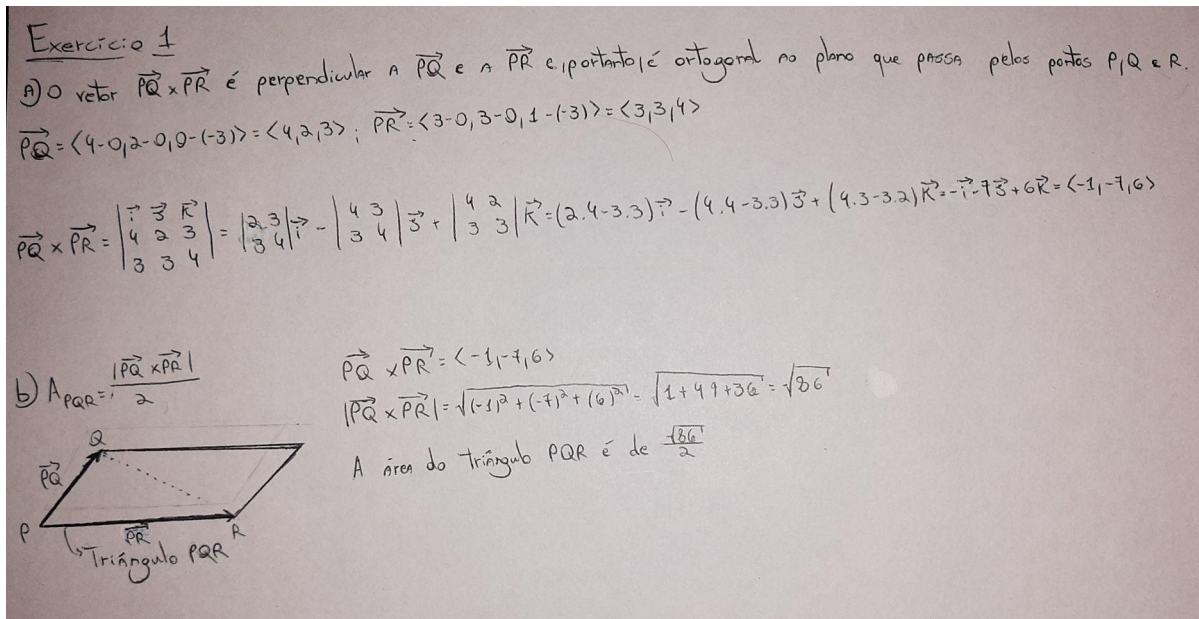 Exercício 1
A) O vetor PQ⃗ x PR⃗ é perpendicular a PQ⃗ e a PR⃗ e, portanto, é ortogonal ao plano que passa pelos pontos P, Q e R.
PQ⃗ = <4-0, 2-0, 0-(-3)> = <4,2,3> ; PR⃗ = <3-0, 3-0, 1-(-3)> = <3,3,4>
PQ⃗ x PR⃗ = |i⃗ j⃗ k⃗; 4 2 3; 3 3 4| = |2 3; 3 4| i⃗ - |4 3; 3 4| j⃗ + |4 2; 3 3| k⃗ = (2.4-3.3) i⃗ - (4.4-3.3) j⃗ + (4.3-3.2) k⃗ = -i⃗ - 7j⃗ + 6k⃗ = <-1,-7,6>
b) A_PQR = |PQ⃗ x PR⃗| / 2
PQ⃗ x PR⃗ = <-1,-7,6>
|PQ⃗ x PR⃗| = √((-1)² + (-7)² + (6)²) = √(1+49+36) = √86
A área do triângulo PQR é de √86/2
Q
PQ⃗
P
PR⃗
R
Triângulo PQR